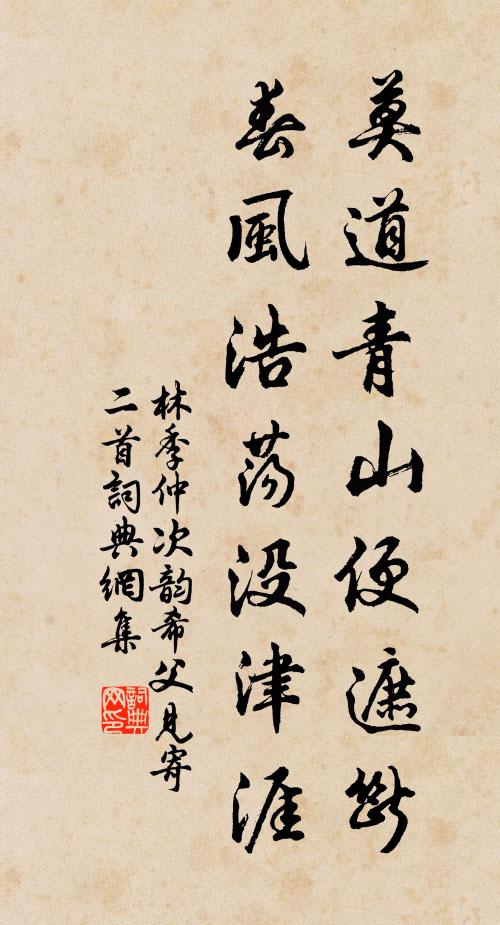 莫道青山便遮斷
春風浩蕩没津涯
林季仲次韵希父見寄
二首詞典網集
詞典
网印